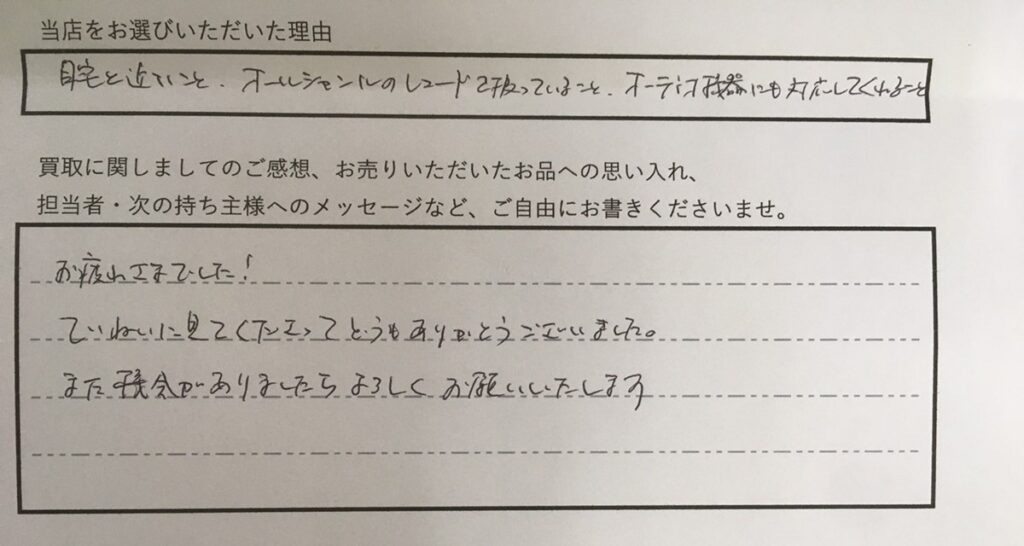 当店をお選びいただいた理由
自宅と近いこと、オールジャンルのレコードを扱っていること、オーディオ機器にも対応してくれること
買取に関しましてのご感想、お売りいただいたお品への思い入れ、
担当者・次の持ち主様へのメッセージなど、ご自由にお書きくださいませ。
お疲れさまでした！
ていねいに見てくださってどうもありがとうございました。
また機会がありましたらよろしくお願いいたします